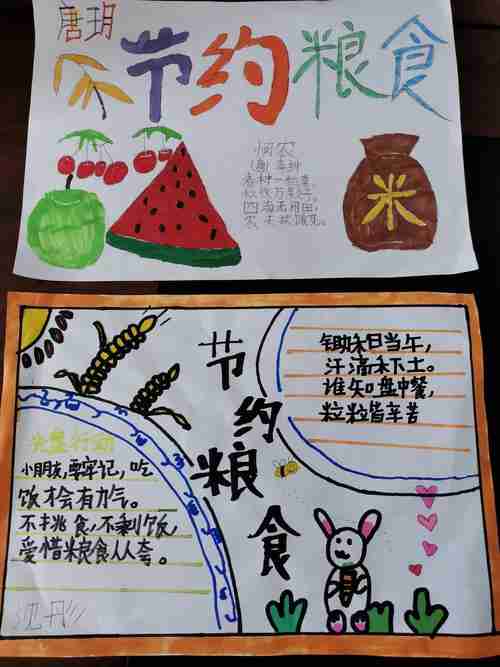 唐玥
节约粮食
悯农
(唐)李绅
春种一粒粟,
秋收万颗子。
四海无闲田,
农夫犹饿死。
米
节约粮食
锄禾日当午,
汗滴禾下土。
谁知盘中餐,
粒粒皆辛苦
光盘行动
小朋友,要牢记,吃
饭才会有力气。
不挑食,不剩饭,
爱惜粮食人人夸。